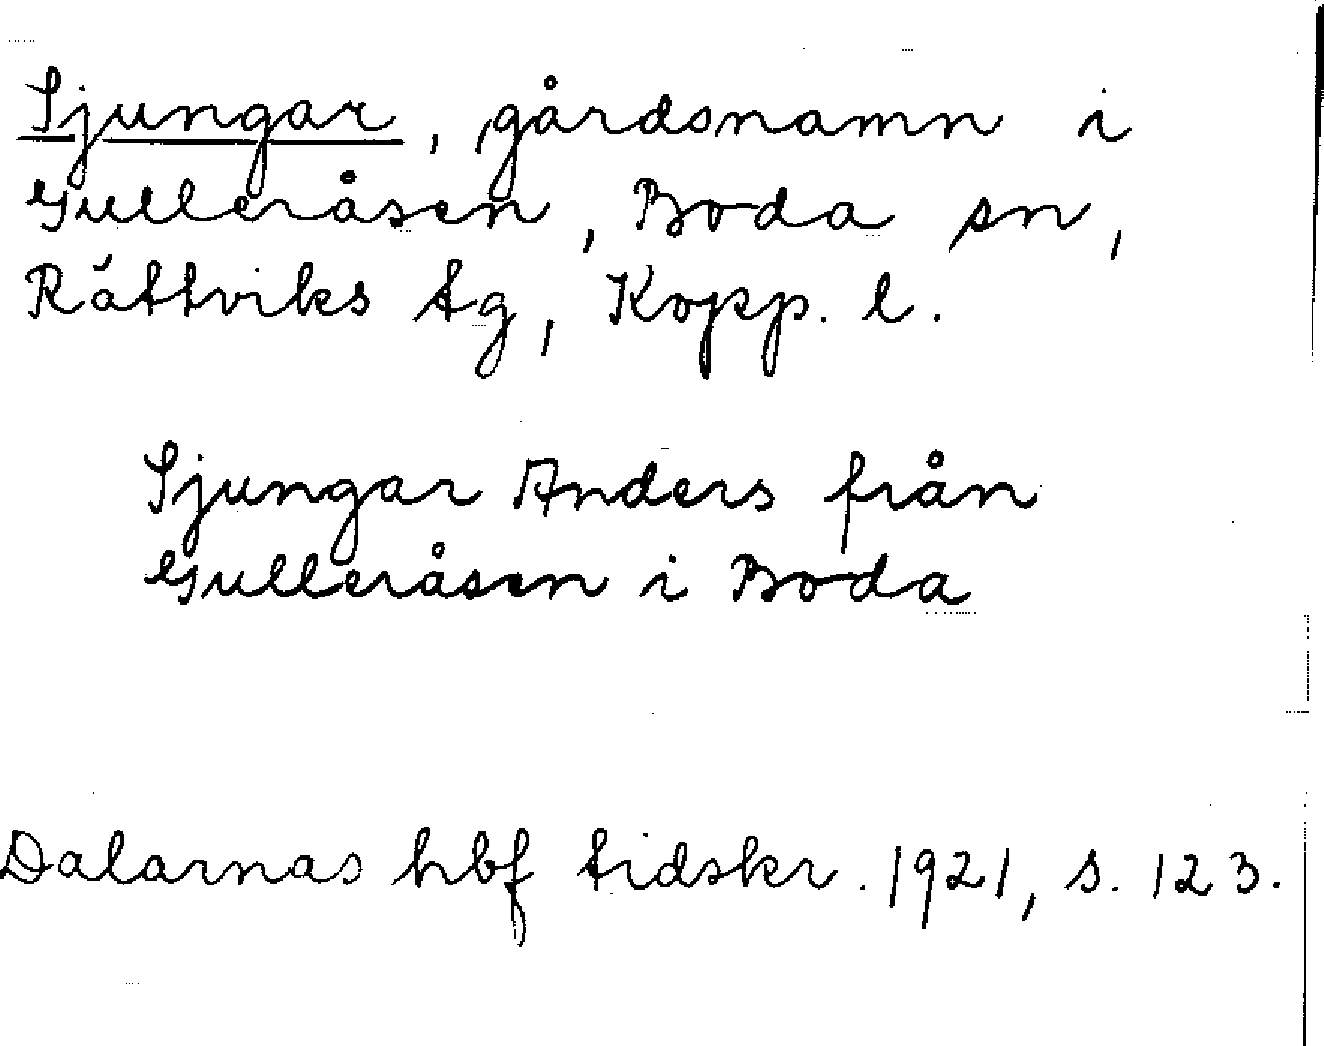 Sjungar, gårdsnamn i
Gulleråsen, Boda sn,
Rättviks tg, Kopp. l.
Sjungar Anders från
Gulleråsen i Boda
Dalarnas hbf tidskr. 1921, s. 123.